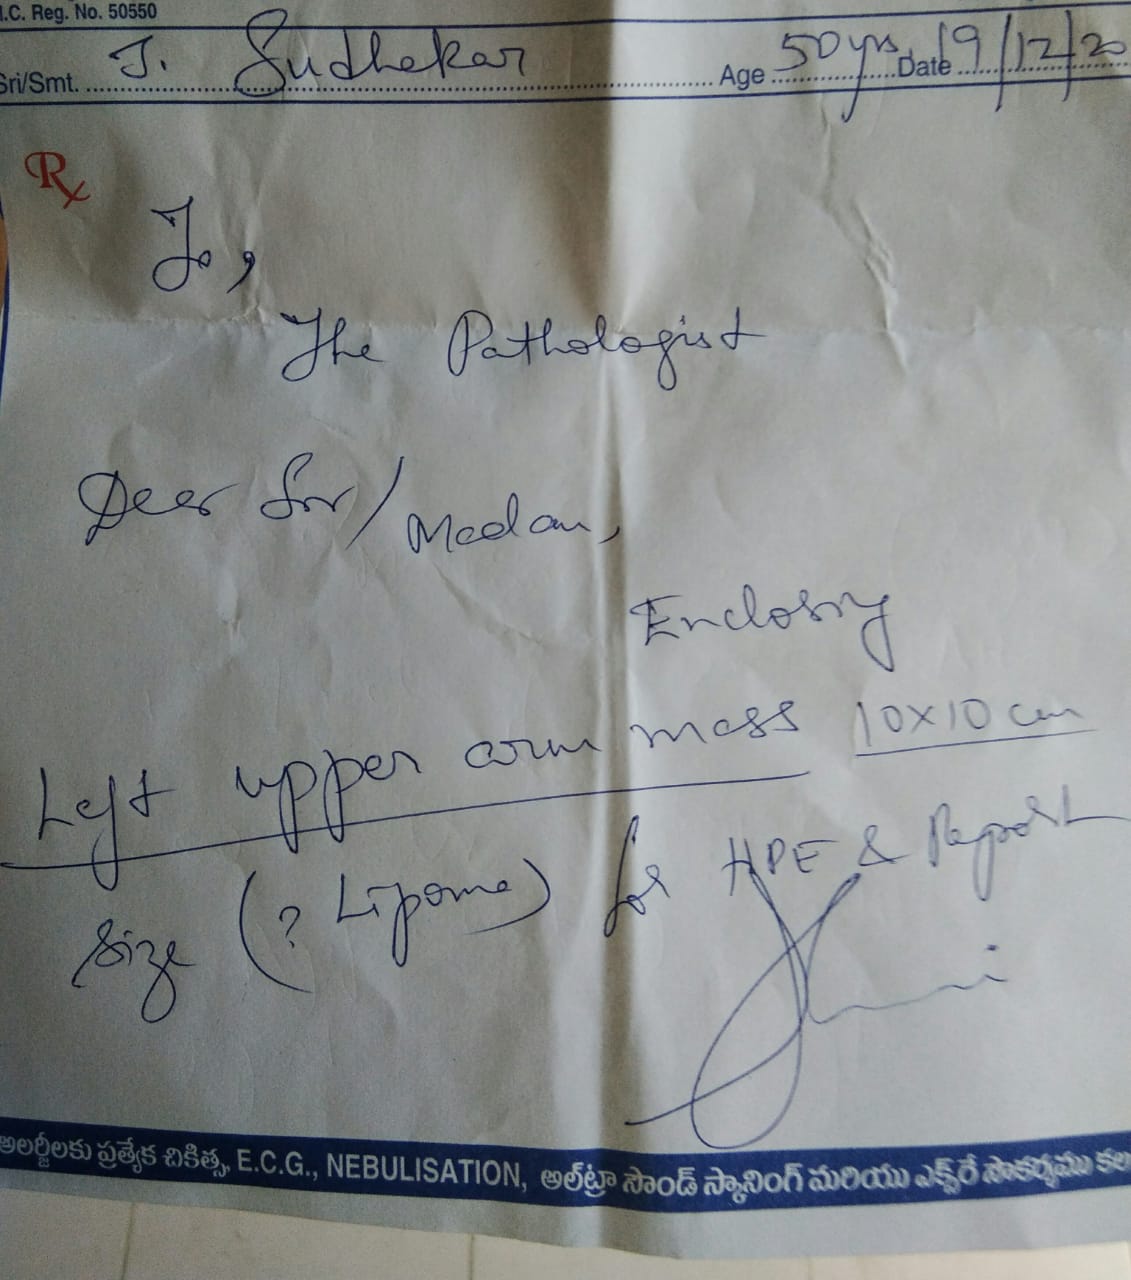 I.C. Reg. No. 50550
Sri/Smt. J. Sudhakar Age 50 yrs Date 19/12/20
Rx
To,
The Pathologist
Dear Sir/Madam,
Enclosing
Left upper arm mass 10x10 cm
size (? Lipoma) for HPE & Report
అలర్జీలకు ప్రత్యేక చికిత్స, E.C.G., NEBULISATION, అల్ట్రా సౌండ్ స్కానింగ్ మరియు ఎక్స్‌రే సౌకర్యము కల